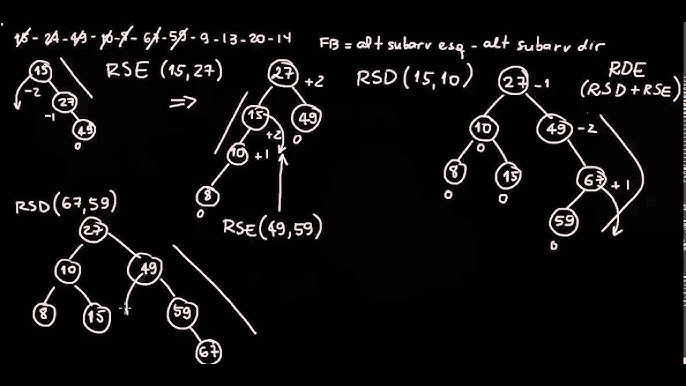 15 - 27 - 49 - 10 - 8 - 67 - 59 - 9 - 13 - 20 - 14
FB = alt subarv esq - alt subarv dir
15
-2
27
-1
49
0
RSE (15,27)
=>
27 +2
15 +2
49
0
10 +1
8
0
RSE(49,59)
RSD(15,10)
27 -1
10
0
49 -2
8
0
15
0
67 +1
59
0
RDE
(RSD+RSE)
RSD(67,59)
27
10
49
8
15
59
67